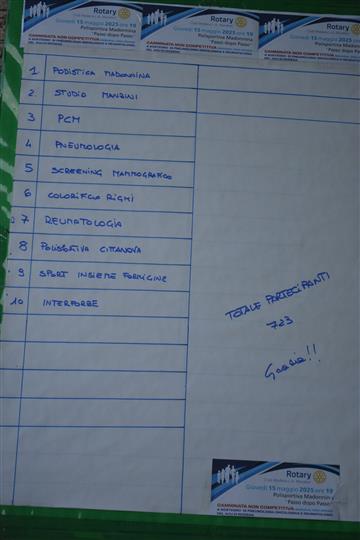 Rotary
Giovedì 15 maggio 2025 ore 19
Polisportiva Madonnina
"Passo dopo Passo"
CAMMINATA NON COMPETITIVA
Rotary
Giovedì 15 maggio 2025 ore 19
Polisportiva Madonnina
"Passo dopo Passo"
CAMMINATA NON COMPETITIVA
Rotary
Giovedì 15 maggio 2025 ore 19
Polisportiva Madonnina
"Passo dopo
CAMMINATA NON COMPETITIVA
1 PODISTICA MADONNINA
2 STUDIO MANZINI
3 PCM
4 PNEUMOLOGIA
5 SCREENING MAMMOGRAFICO
6 COLORIFICIO RIGHI
7 REUMATOLOGIA
8 POLISPORTIVA CITTANOVA
9 SPORT INSIEME FORMIGINE
10 INTERFORBE
TOTALE PARTECIPANTI
723
Grazie!!
Rotary
Giovedì 15 maggio 2025 ore 19
Polisportiva Madonnina
"Passo dopo Passo"
CAMMINATA NON COMPETITIVA
A SOSTEGNO DI PNEUMOLOGIA ONCOLOGICA E REUMATOLOGIA